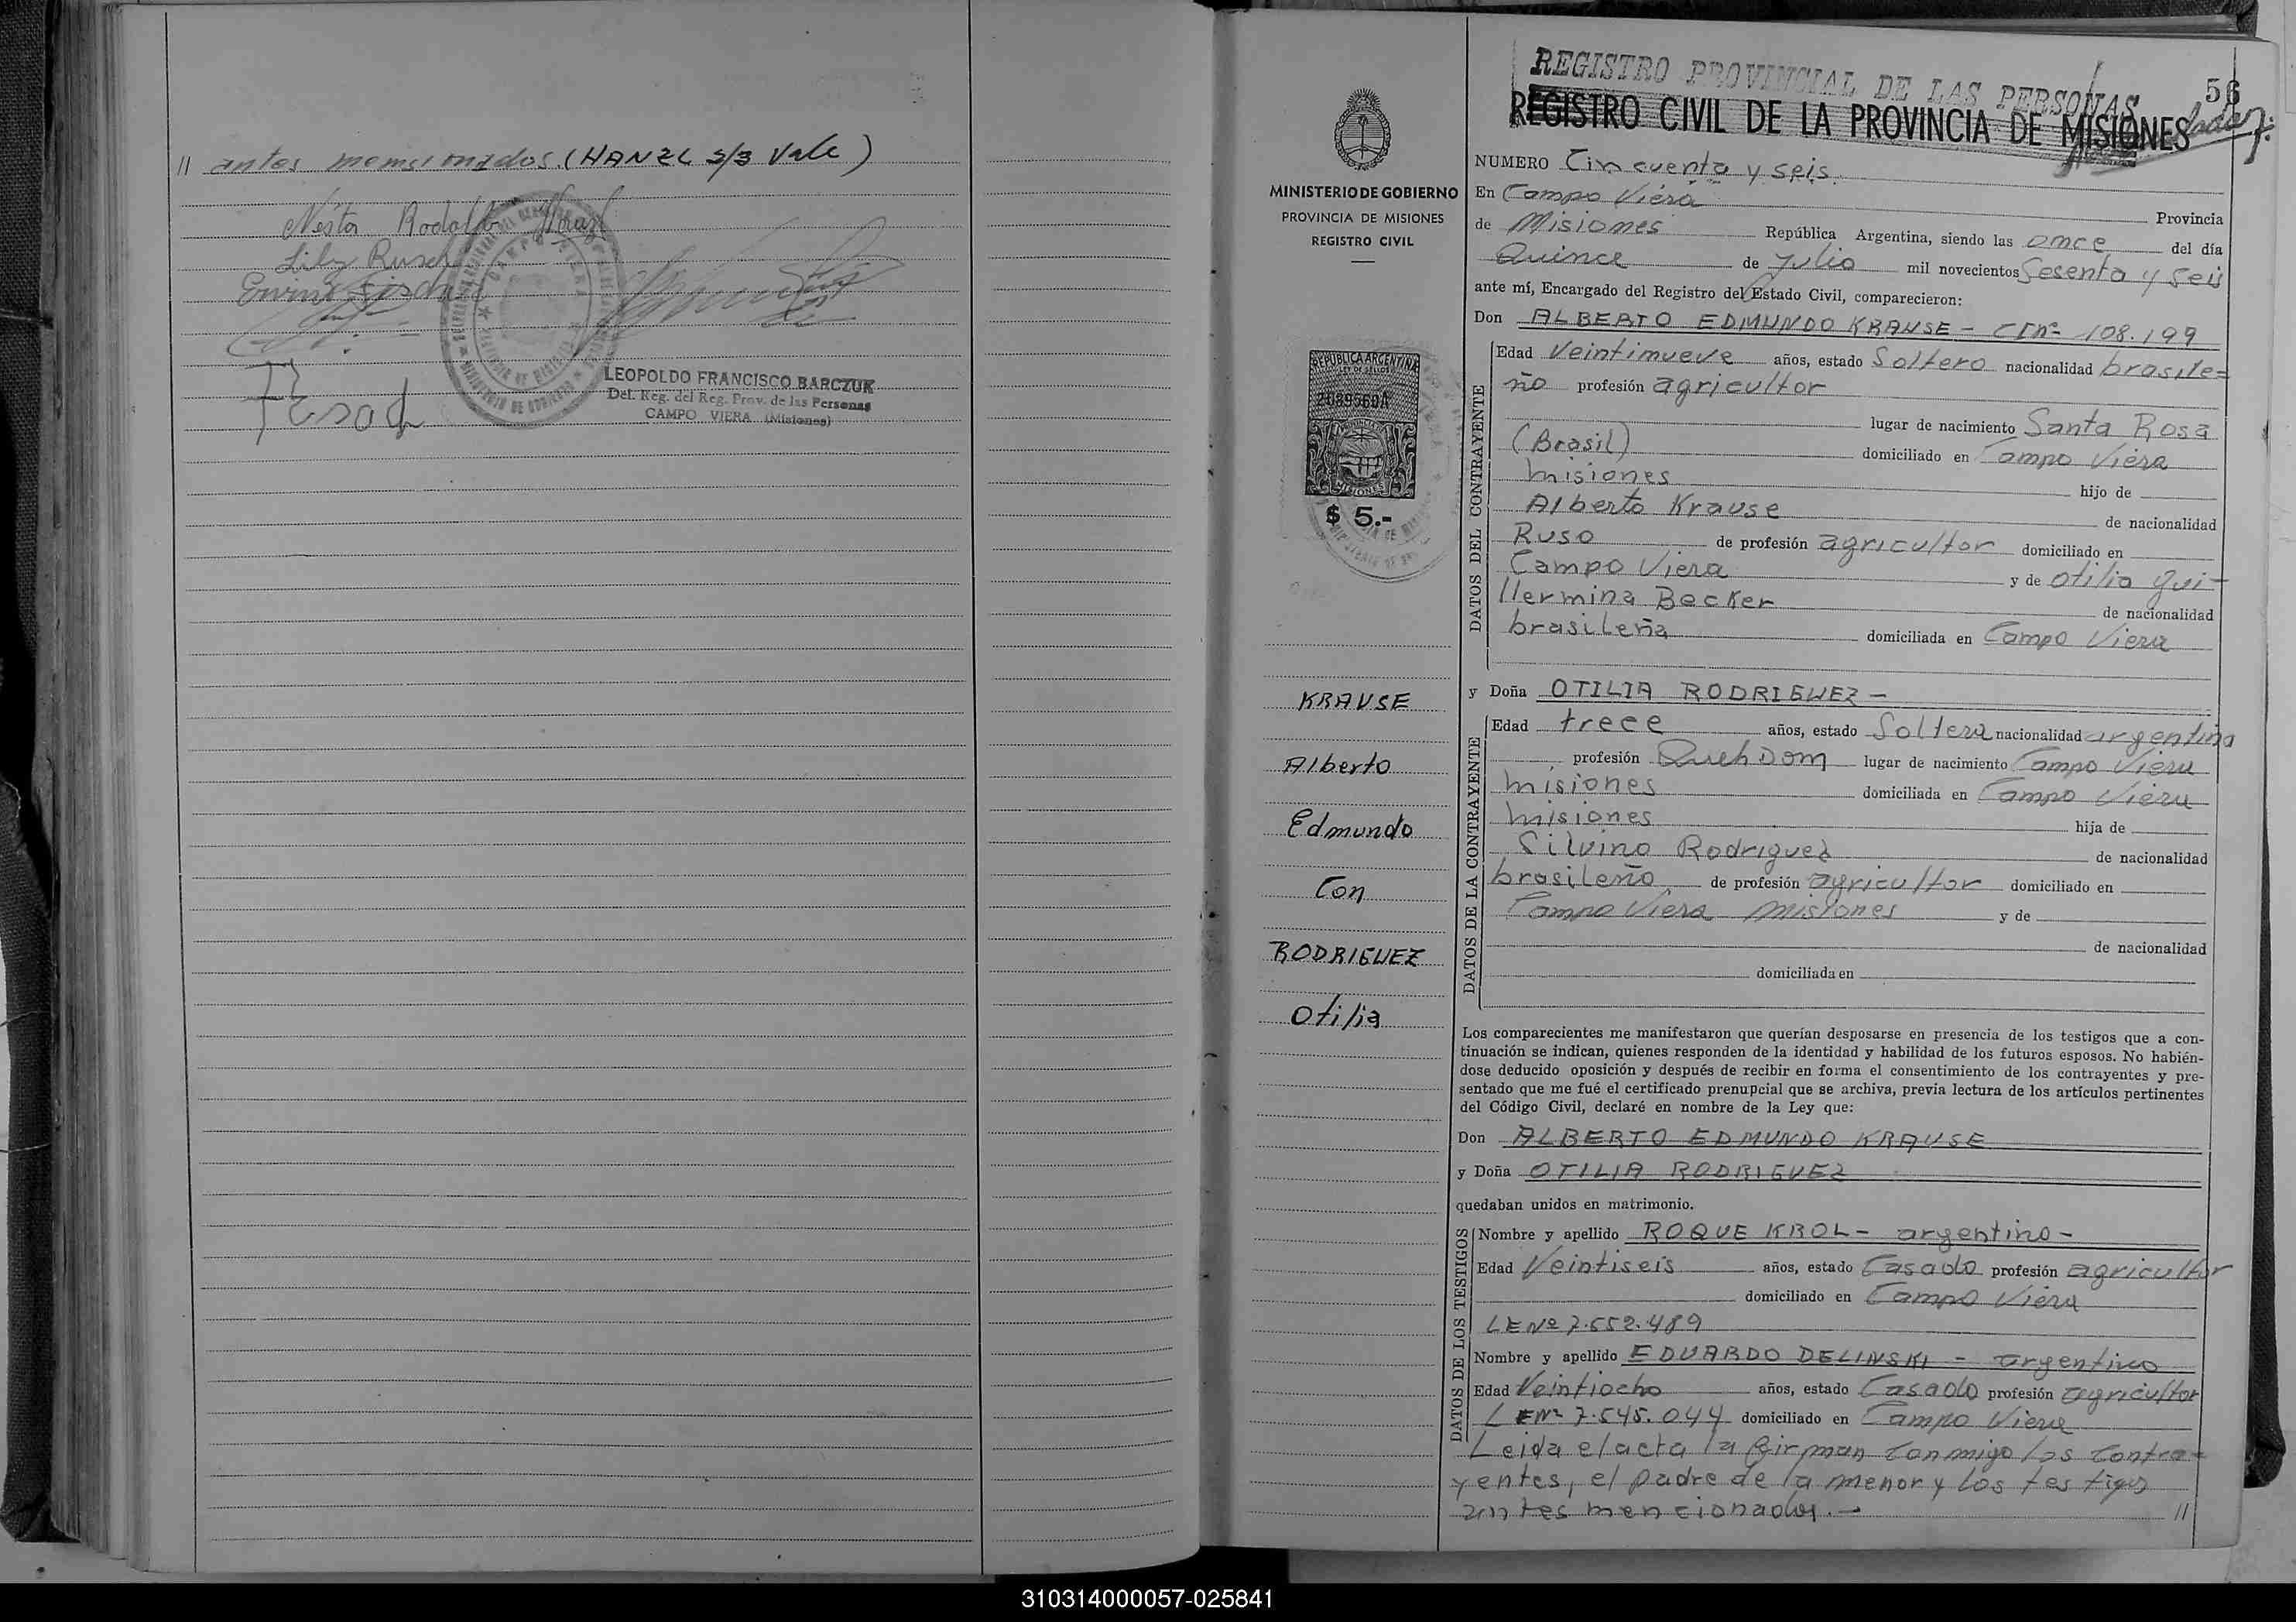 // antes mensionados. (HANZL s/3 Vale)
Néstor Rodolfo
Lily Rusch
LEOPOLDO FRANCISCO BARCZUK
Del. Reg. del Reg. Prov. de las Personas
CAMPO VIERA (Misiones)
MINISTERIO DE GOBIERNO
PROVINCIA DE MISIONES
REGISTRO CIVIL
REPUBLICA ARGENTINA
LEY DE SELLOS
2089560A
MISIONES
$ 5.-
KRAUSE
Alberto
Edmundo
Con
RODRIGUEZ
Otilia
REGISTRO PROVINCIAL DE LAS PERSONAS
56
REGISTRO CIVIL DE LA PROVINCIA DE MISIONES
NUMERO Cincuenta y seis.
En Campo Viera Provincia
de Misiones República Argentina, siendo las once del día
Quince de Julio mil novecientos Sesenta y Seis
ante mí, Encargado del Registro del Estado Civil, comparecieron:
Don ALBERTO EDMUNDO KRAUSE - CInº 108.199
DATOS DEL CONTRAYENTE
Edad Veintinueve años, estado Soltero nacionalidad brasile=
ño profesión agricultor
lugar de nacimiento Santa Rosa
(Brasil) domiciliado en Campo Viera
misiones hijo de
Alberto Krause de nacionalidad
Ruso de profesión agricultor domiciliado en
Campo Viera y de otilia gui-
llermina Becker de nacionalidad
brasileña domiciliada en Campo Viera
y Doña OTILIA RODRIGUEZ -
DATOS DE LA CONTRAYENTE
Edad trece años, estado Soltera nacionalidad argentina
profesión Queh Dom lugar de nacimiento Campo Viera
misiones domiciliada en Campo Viera
misiones hija de
Silvino Rodriguez de nacionalidad
brasileño de profesión agricultor domiciliado en
Campo Viera misiones y de
de nacionalidad
domiciliada en
Los comparecientes me manifestaron que querían desposarse en presencia de los testigos que a con-
tinuación se indican, quienes responden de la identidad y habilidad de los futuros esposos. No habién-
dose deducido oposición y después de recibir en forma el consentimiento de los contrayentes y pre-
sentado que me fué el certificado prenupcial que se archiva, previa lectura de los artículos pertinentes
del Código Civil, declaré en nombre de la Ley que:
Don ALBERTO EDMUNDO KRAUSE
y Doña OTILIA RODRIGUEZ
quedaban unidos en matrimonio.
DATOS DE LOS TESTIGOS
Nombre y apellido ROQUE KROL - argentino -
Edad Veintiseis años, estado Casado profesión agricultor
domiciliado en Campo Viera
LE Nº 7.552.489
Nombre y apellido EDUARDO DELINSKI - argentino
Edad Veintiocho años, estado Casado profesión agricultor
LE Nº 7.545.044 domiciliado en Campo Viera
Leida el acta la firman conmigo los contra=
yentes, el padre de la menor y los testigos
antes mencionados. - //
310314000057-025841